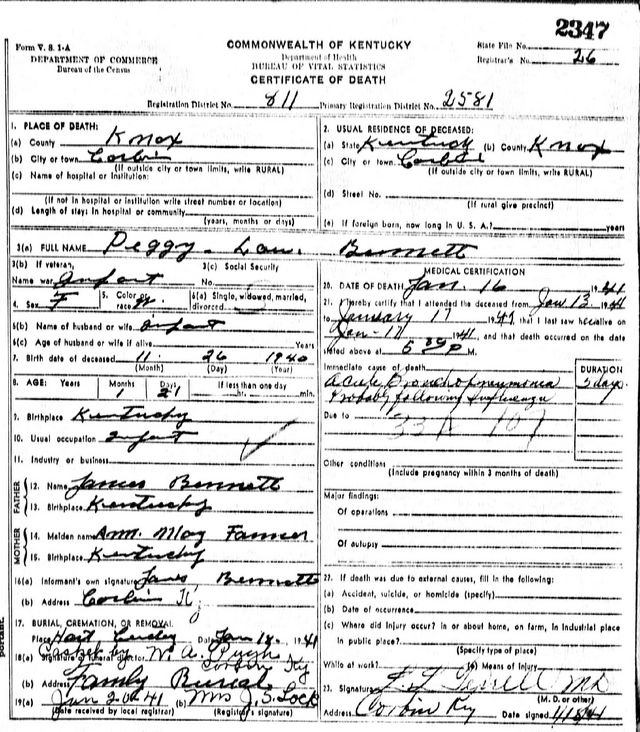 2347
Form V. S. 1-A
DEPARTMENT OF COMMERCE
Bureau of the Census
COMMONWEALTH OF KENTUCKY
Department of Health
BUREAU OF VITAL STATISTICS
CERTIFICATE OF DEATH
State File No.
Registrar's No. 26
Registration District No. 811 Primary Registration District No. 2581
1. PLACE OF DEATH:
(a) County Knox
(b) City or town Corbin
(If outside city or town limits, write RURAL)
(c) Name of hospital or institution:
(If not in hospital or institution write street number or location)
(d) Length of stay: In hospital or community
(years, months or days)
2. USUAL RESIDENCE OF DECEASED:
(a) State Kentucky (b) County Knox
(c) City or town Corbin
(If outside city or town limits, write RURAL)
(d) Street No.
(If rural give precinct)
(e) If foreign born, now long in U. S. A.? years
3(a) FULL NAME Peggy Lou Bennett
3(b) If veteran, 3(c) Social Security
Name war Infant No.
4. Sex F 5. Color or race W. 6(a) Single, widowed, married, divorced
6(b) Name of husband or wife Infant
6(c) Age of husband or wife if alive Years
7. Birth date of deceased 11 26 1940
(Month) (Day) (Year)
8. AGE: Years Months Days If less than one day
1 21 hr. min.
9. Birthplace Kentucky
10. Usual occupation Infant
11. Industry or business
FATHER
12. Name James Bennett
13. Birthplace Kentucky
MOTHER
14. Maiden name Ann May Farmer
15. Birthplace Kentucky
16(a) Informant's own signature James Bennett
(b) Address Corbin Ky
17. BURIAL, CREMATION, OR REMOVAL
Place Hart Date Jan 18. 1941
Casket by W. A. Pugh
18(a) Signature of funeral director Corbin Ky
(b) Address Family Burial
19(a) Jan 20 41 (b) Mrs J. S. Lock
(Date received by local registrar) (Registrar's signature)
MEDICAL CERTIFICATION
20. DATE OF DEATH Jan. 16 1941
21. I hereby certify that I attended the deceased from Jan 13 1941
to January 17 1941, that I last saw her alive on
Jan-17 1941, and that death occurred on the date
stated above at 5 P M.
Immediate cause of death DURATION
Acute Bronchopneumonia 3 days
Probably following Influenza
Due to 33A 107
Other conditions
(Include pregnancy within 3 months of death)
Major findings:
Of operations
Of autopsy
22. If death was due to external causes, fill in the following:
(a) Accident, suicide, or homicide (specify)
(b) Date of occurrence
(c) Where did injury occur? in or about home, on farm, in industrial place
in public place?
(Specify type of place)
While at work? (e) Means of injury
23. Signature Terrell MD
(M. D. or other)
Address Corbin Ky Date signed 1/18/41
portant.